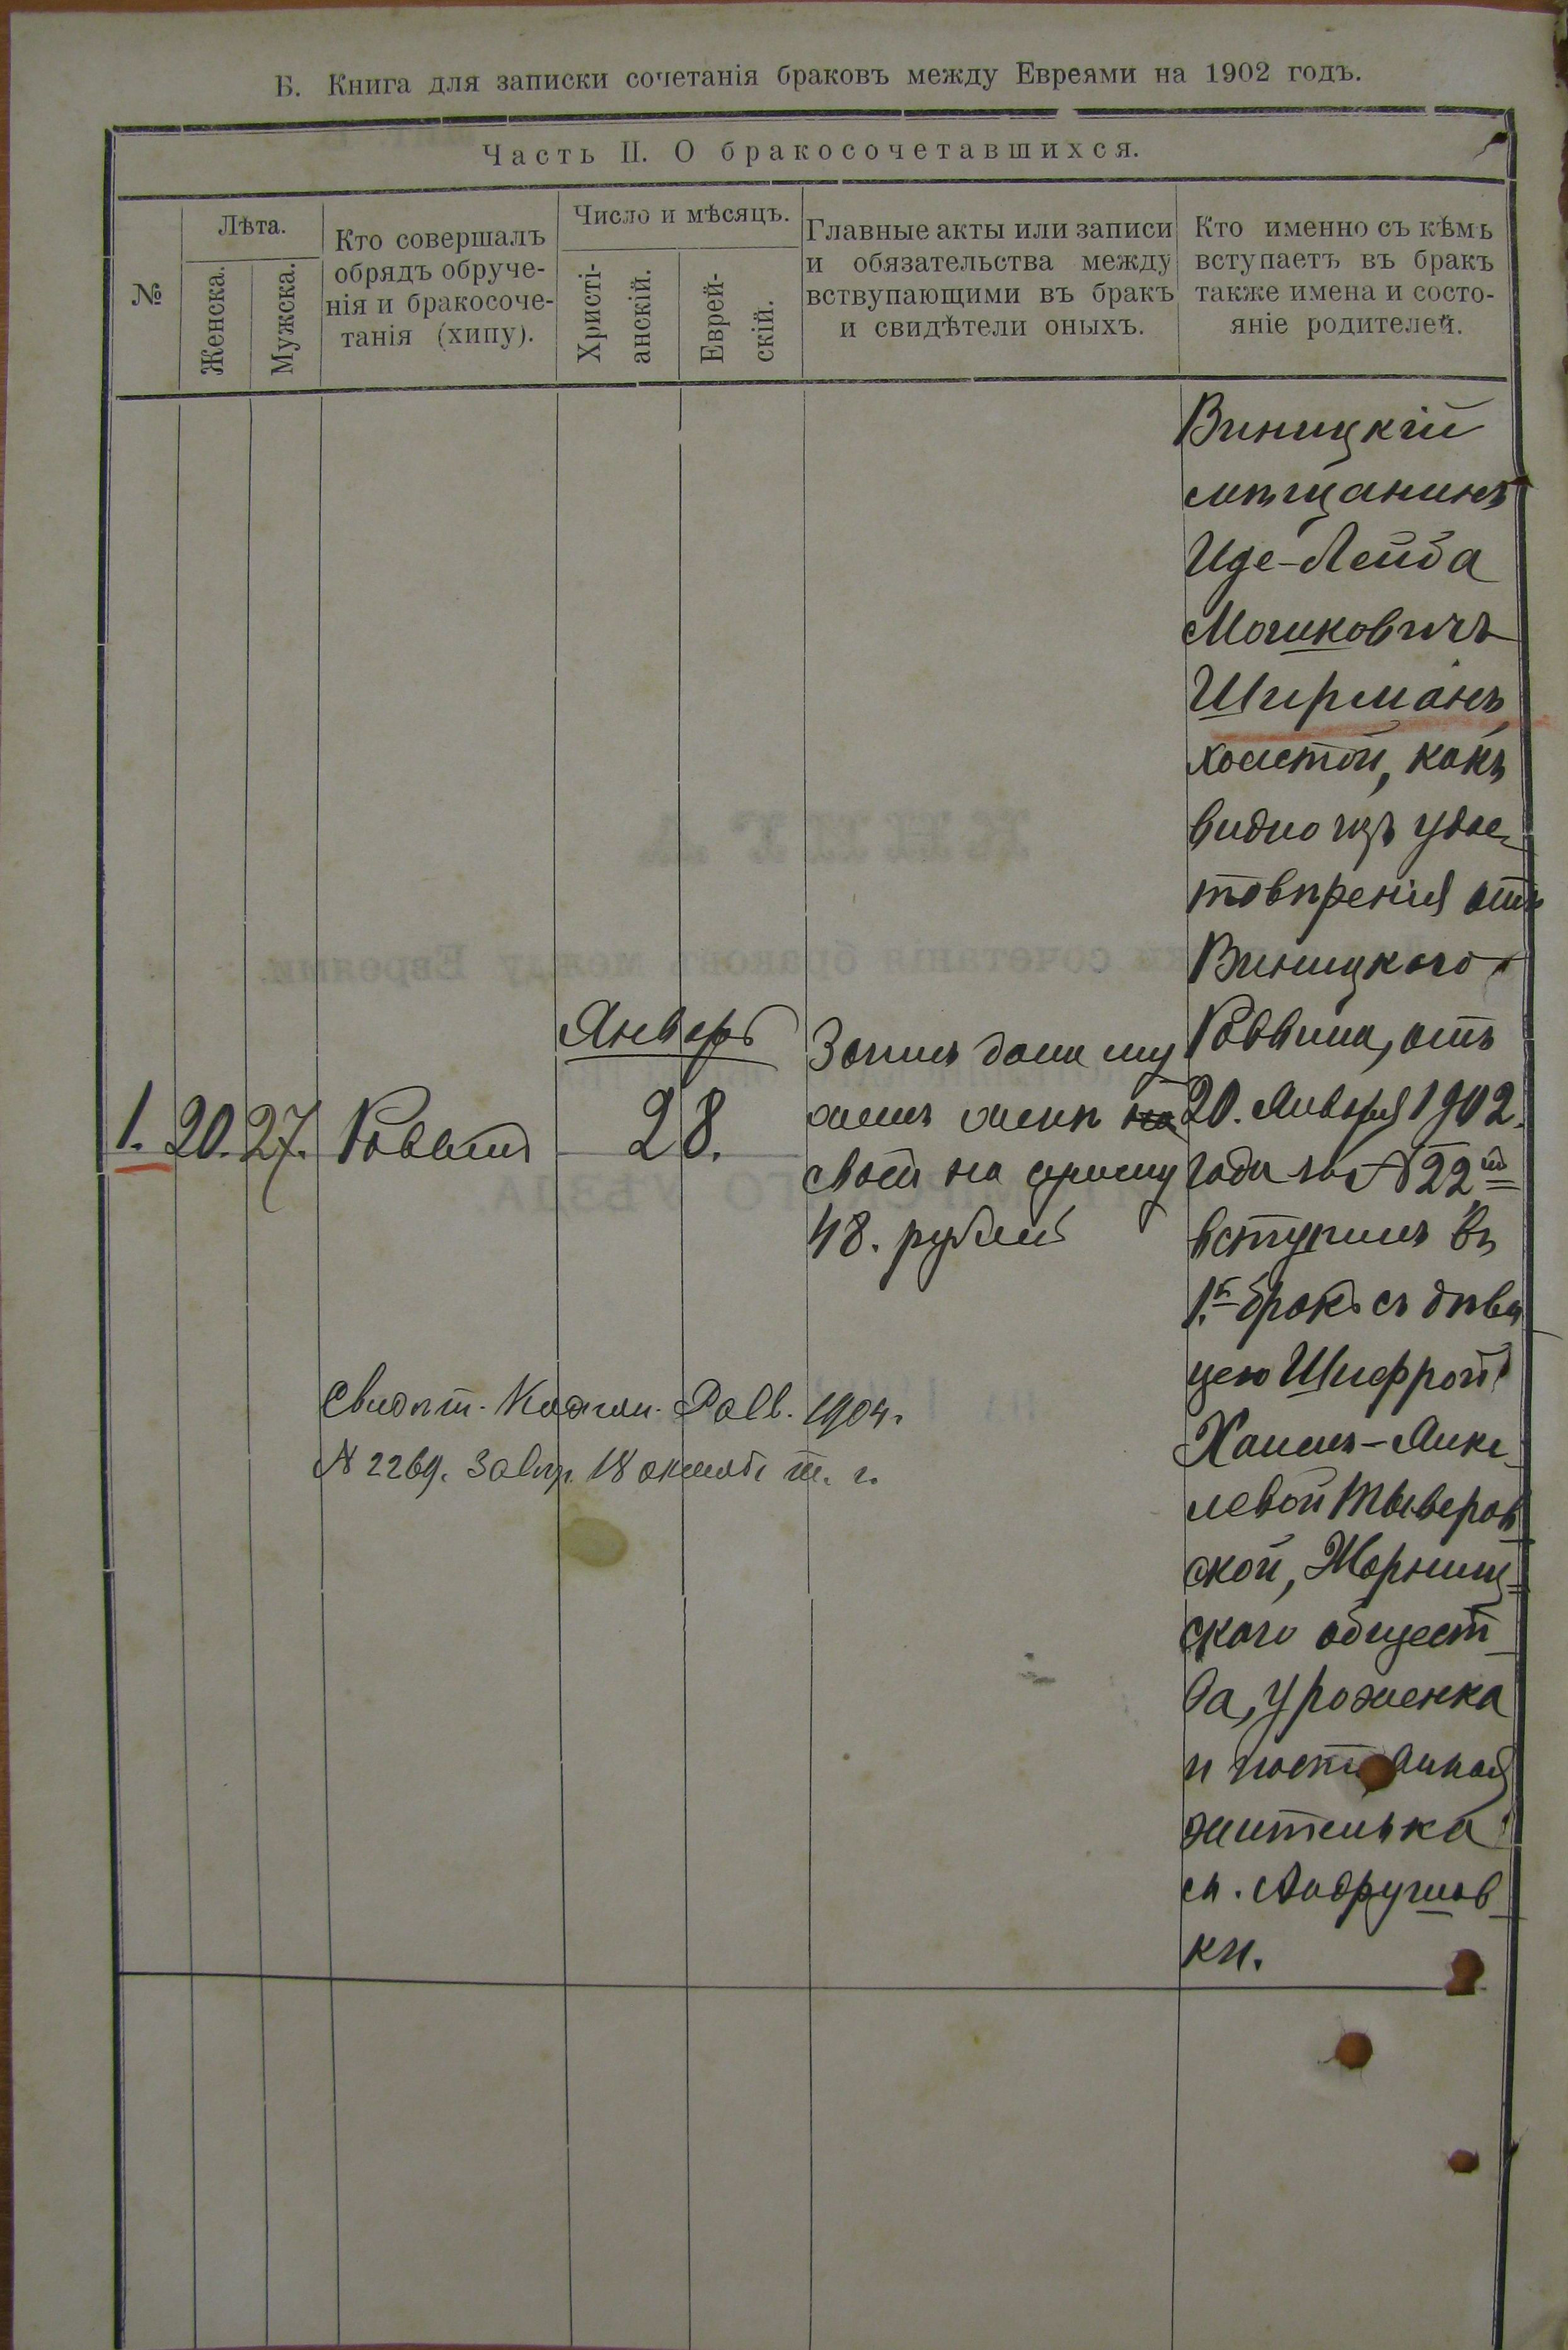 Б. Книга для записки сочетанія браковъ между Евреями на 1902 годъ.
Часть II. О бракосочетавшихся.
№
Лѣта.
Женска.
Мужска.
Кто совершалъ
обрядъ обруче-
нія и бракосоче-
танія (хипу).
Число и мѣсяцъ.
Христі-
анскій.
Еврей-
скій.
Главные акты или записи
и обязательства между
вствупающими въ бракъ
и свидѣтели оныхъ.
Кто именно съ кѣмъ
вступаетъ въ бракъ
также имена и состо-
яніе родителей.
1. 20. 27. Раввинъ
Январь
28.
Запись дана му
жемъ женѣ на
своей на сумму
48. рублей
Виницкій
мѣщанинъ
Иде-Лейба
Мошковичъ
Ширманъ,
холостой, какъ
видно изъ удос-
товѣренія отъ
Виницкого
Раввина, отъ
20. Января 1902.
года за № 22й
вступилъ въ
1.й бракъ съ дѣви
цею Шифрой
Хаимъ-Микe-
левой Тыверов
ской, Жорнищ-
ского общест-
ва, уроженка
и постоянная
жителька
м. Андрушов-
ки.
Свидѣт. Раввин. 1904.
№ 2269. 18 октяб. т. г.
КНИГА
сочетанія браковъ между Евреями
УѢЗДА.